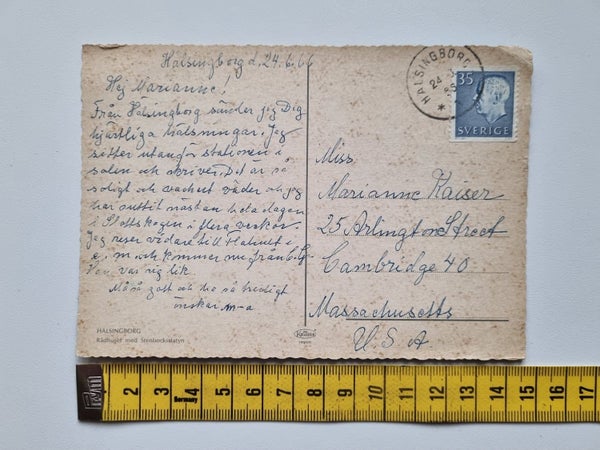 Halsingborg d. 24.6.66
Hej Marianne,
Från Halsingborg sänder jag Dig
hjärtliga hälsningar. Jag
sitter utanför stationen i
solen och skriver. Det är så
soligt och vackert väder och jag
har suttit nästan hela dagen
i Slottskogen i flera veckor.
Jag reser vidare till
e. m. och kommer
var sig lik.
Må så gott och ha så
önskar M-a
HÄLSINGBORG
Rådhuset med Stenbocksstatyn
HÄLSINGBORG
24
35
SVERIGE
Miss
Marianne Kaiser
25 Arlington Street
Cambridge 40
Massachusetts
U. S. A
2 3 4 Germany 5 6 7 8 9 10 11 12 13 14 15 16 17